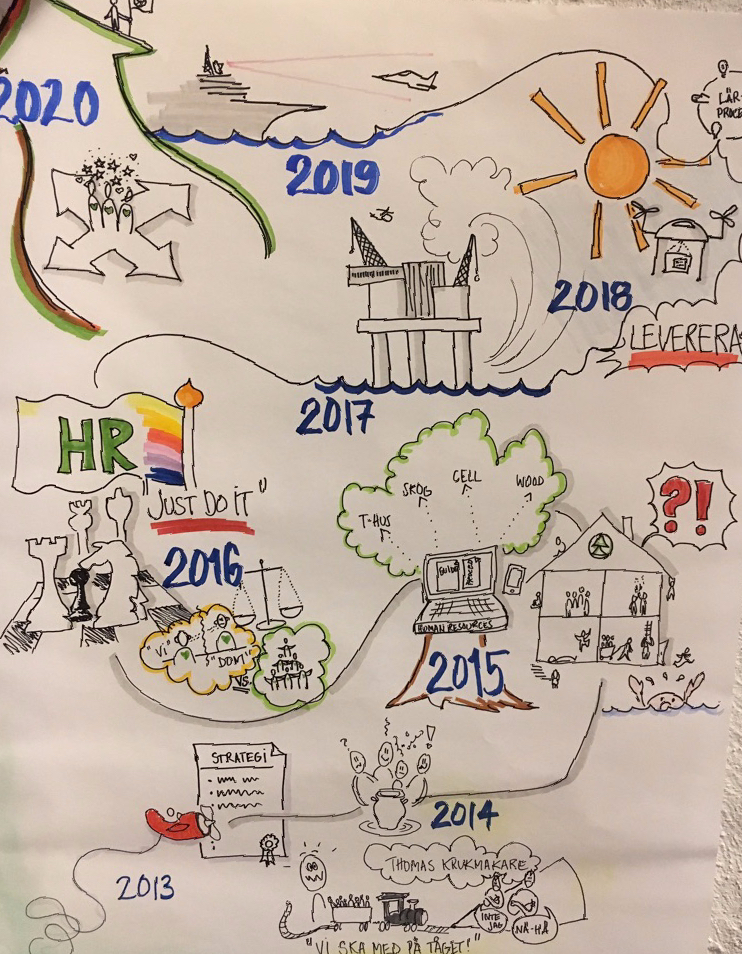 2020
2019
LÄR-
PROCE
2018
LEVERERA
2017
HR
"JUST DO IT"
2016
"VI"
"DOM"
VS.
T-HUS
SKOG
CELL
WOOD
HUMAN RESOURCES
2015
?!
STRATEGI
2014
2013
THOMAS KRUKMAKARE
INTE
JAG
NÄ-HÄ
"VI SKA MED PÅ TÅGET!"